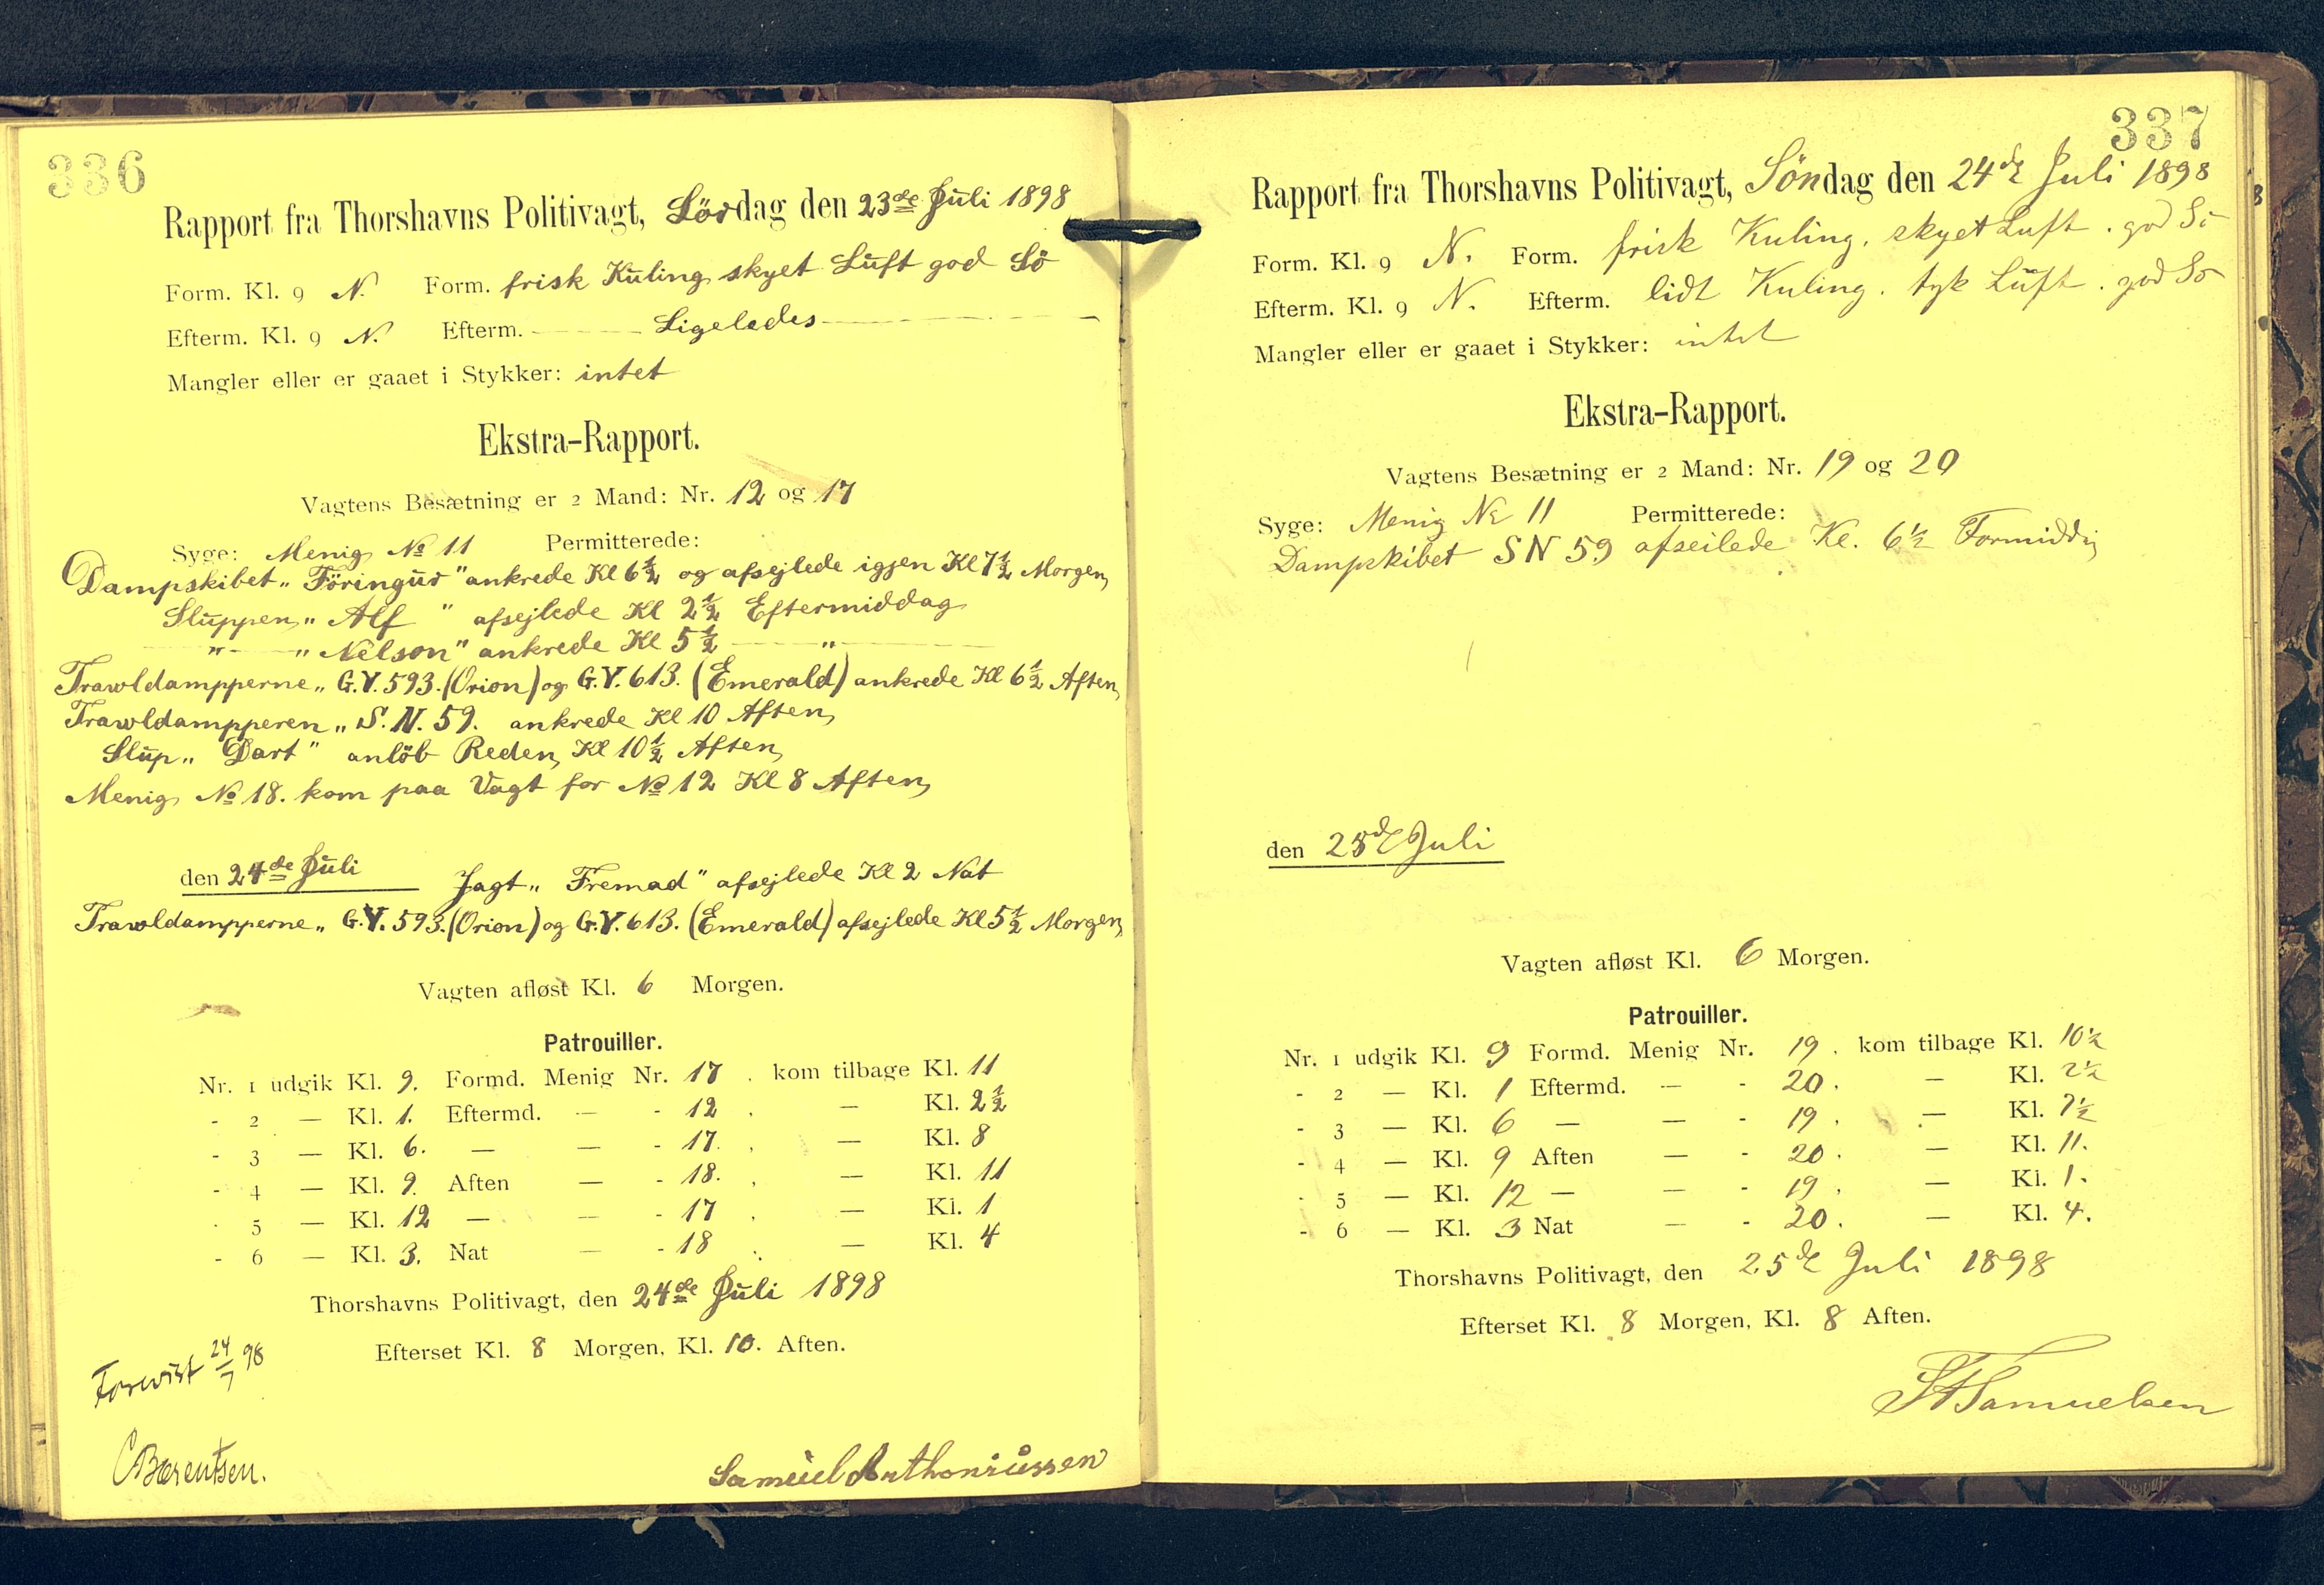 336
Rapport fra Thorshavns Politivagt, Lördag den 23de Juli 1898
Form. Kl. 9 N. Form. frisk Kuling skyet Luft god Sö
Efterm. Kl. 9 N. Efterm. — Ligeledes —
Mangler eller er gaaet i Stykker: intet
Ekstra-Rapport.
Vagtens Besætning er 2 Mand: Nr. 12 og 17
Syge: Menig No 11 Permitterede:
Dampskibet „Föringur" ankrede Kl 6½ og afsejlede igjen Kl 7½ Morgen
Sluppen „Alf" afsejlede Kl 2½ Eftermiddag
— " — „Nelson" ankrede Kl 5½ — " —
Trawldampperne „G.Y. 593. (Orion) og G.Y. 613. (Emerald) ankrede Kl 6½ Aften
Trawldampperen „S.N. 59. ankrede Kl 10 Aften
Slup „Dart" anlöb Reden Kl 10½ Aften
Menig No 18. kom paa Vagt for No 12 Kl 8 Aften
den 24de Juli Jagt „Fremad" afsejlede Kl 2 Nat
Trawldampperne „G.Y. 593. (Orion) og G.Y. 613. (Emerald) afsejlede Kl 5½ Morgen
Vagten afløst Kl. 6 Morgen.
Patrouiller.
Nr. 1 udgik Kl. 9. Formd. Menig Nr. 17. kom tilbage Kl. 11
- 2 — Kl. 1. Eftermd. — - 12. — Kl. 2½
- 3 — Kl. 6. — — - 17. — Kl. 8
- 4 — Kl. 9. Aften — - 18. — Kl. 11
- 5 — Kl. 12 — — - 17. — Kl. 1
- 6 — Kl. 3. Nat — - 18. — Kl. 4
Thorshavns Politivagt, den 24de Juli 1898
Efterset Kl. 8 Morgen, Kl. 10. Aften.
Forevist 24/7 98
CBærentsen.
Samuel Anthoniussen
337
Rapport fra Thorshavns Politivagt, Söndag den 24de Juli 1898
Form. Kl. 9 N. Form. frisk Kuling. skyet Luft. god Sö
Efterm. Kl. 9 N. Efterm. lidt Kuling. tyk Luft. god Sö
Mangler eller er gaaet i Stykker: intet
Ekstra-Rapport.
Vagtens Besætning er 2 Mand: Nr. 19 og 20
Syge: Menig No 11 Permitterede:
Dampskibet SN 59 afseilede Kl. 6½ Formiddg
den 25de Juli
Vagten afløst Kl. 6 Morgen.
Patrouiller.
Nr. 1 udgik Kl. 9 Formd. Menig Nr. 19. kom tilbage Kl. 10½
- 2 — Kl. 1 Eftermd. — - 20. — Kl. 2½
- 3 — Kl. 6 — — - 19. — Kl. 7½
- 4 — Kl. 9 Aften — - 20. — Kl. 11.
- 5 — Kl. 12 — — - 19. — Kl. 1.
- 6 — Kl. 3 Nat — - 20. — Kl. 4.
Thorshavns Politivagt, den 25de Juli 1898
Efterset Kl. 8 Morgen, Kl. 8 Aften.
Samuelsen